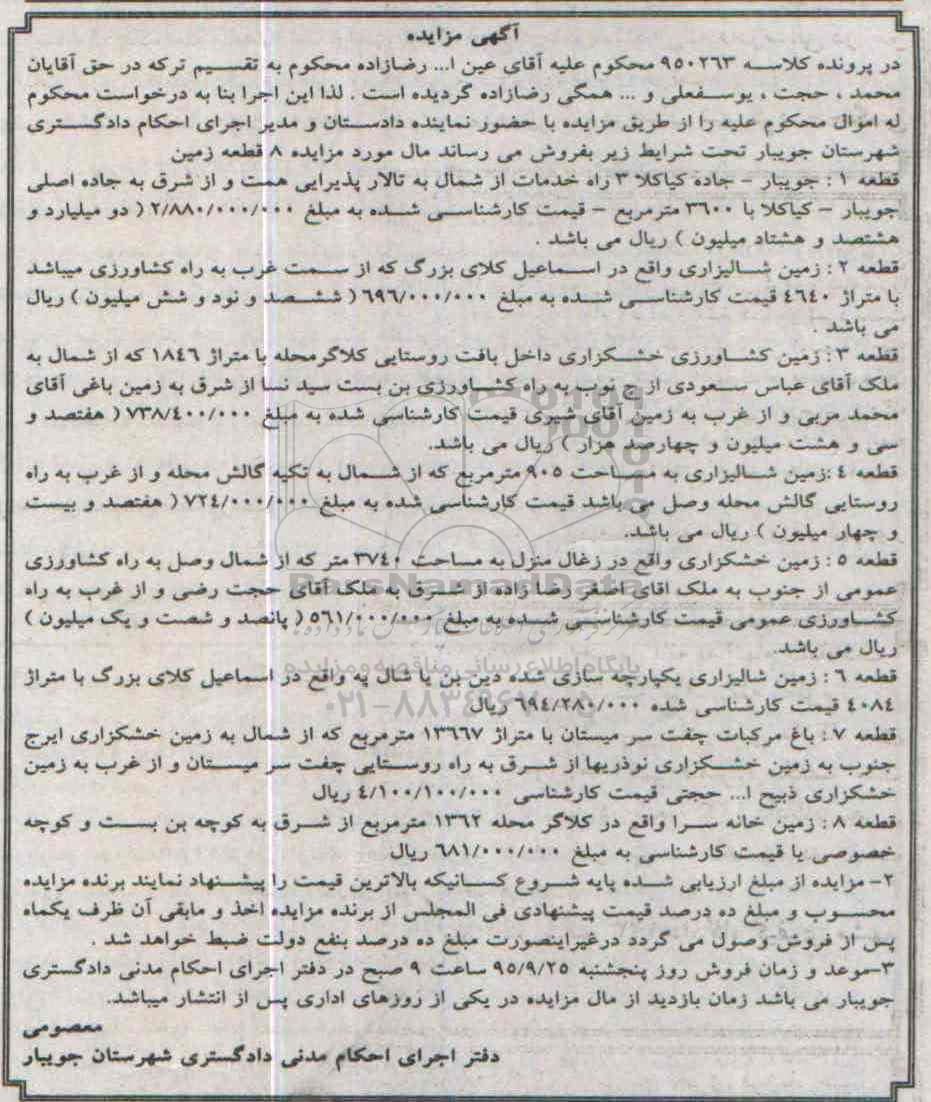 آگهی مزایده
در پرونده کلاسه ۹۵۰۲۶۳ محکوم علیه آقای عین ا... رضازاده محکوم به تقسیم ترکه در حق آقایان
محمد ، حجت ، یوسفعلی و ... همگی رضازاده گردیده است . لذا این اجرا بنا به درخواست محکوم
له اموال محکوم علیه را از طریق مزایده با حضور نماینده دادستان و مدیر اجرای احکام دادگستری
شهرستان جویبار تحت شرایط زیر بفروش می رساند مال مورد مزایده ۸ قطعه زمین
قطعه ۱ : جویبار – جاده کیاکلا ۳ راه خدمات از شمال به تالار پذیرایی همت و از شرق به جاده اصلی
جویبار – کیاکلا با ۳۶۰۰ مترمربع – قیمت کارشناسی شده به مبلغ ۲/۸۸۰/۰۰۰/۰۰۰ ( دو میلیارد و
هشتصد و هشتاد میلیون ) ریال می باشد .
قطعه ۲ : زمین شالیزاری واقع در اسماعیل کلای بزرگ که از سمت غرب به راه کشاورزی میباشد
با متراژ ۴۶۴۰ قیمت کارشناسی شده به مبلغ ۶۹۶/۰۰۰/۰۰۰ ( ششصد و نود و شش میلیون ) ریال
می باشد .
قطعه ۳ : زمین کشاورزی خشکزاری داخل بافت روستایی کلاگرمحله با متراژ ۱۸۴۶ که از شمال به
ملک آقای عباس سعودی از ج نوب به راه کشاورزی بن بست سید نسا از شرق به زمین باغی آقای
محمد مربی و از غرب به زمین آقای شیری قیمت کارشناسی شده به مبلغ ۷۳۸/۴۰۰/۰۰۰ ( هفتصد و
سی و هشت میلیون و چهارصد هزار ) ریال می باشد.
قطعه ۴ :زمین شالیزاری به مساحت ۹۰۵ مترمربع که از شمال به تکیه گالش محله و از غرب به راه
روستایی گالش محله وصل می باشد قیمت کارشناسی شده به مبلغ ۷۲۴/۰۰۰/۰۰۰ ( هفتصد و بیست
و چهار میلیون ) ریال می باشد.
قطعه ۵ : زمین خشکزاری واقع در زغال منزل به مساحت ۳۷۴۰ متر که از شمال وصل به راه کشاورزی
عمومی از جنوب به ملک اقای اصغر رضا زاده از شرق به ملک آقای حجت رضی و از غرب به راه
کشاورزی عمومی قیمت کارشناسی شده به مبلغ ۵۶۱/۰۰۰/۰۰۰ ( پانصد و شصت و یک میلیون )
ریال می باشد.
قطعه ۶ : زمین شالیزاری یکپارچه سازی شده دین بن یا شال په واقع در اسماعیل کلای بزرگ با متراژ
۴۰۸۴ قیمت کارشناسی شده ۶۹۴/۲۸۰/۰۰۰ ریال
قطعه ۷ : باغ مرکبات چفت سر میستان با متراژ ۱۳۶۶۷ مترمربع که از شمال به زمین خشکزاری ایرج
جنوب به زمین خشکزاری نوذریها از شرق به راه روستایی چفت سر میستان و از غرب به زمین
خشکزاری ذبیح ا... حجتی قیمت کارشناسی ۴/۱۰۰/۱۰۰/۰۰۰ ریال
قطعه ۸ : زمین خانه سرا واقع در کلاگر محله ۱۳۶۲ مترمربع از شرق به کوچه بن بست و کوچه
خصوصی با قیمت کارشناسی به مبلغ ۶۸۱/۰۰۰/۰۰۰ ریال
۲- مزایده از مبلغ ارزیابی شده پایه شروع کسانیکه بالاترین قیمت را پیشنهاد نمایند برنده مزایده
محسوب و مبلغ ده درصد قیمت پیشنهادی فی المجلس از برنده مزایده اخذ و مابقی آن ظرف یکماه
پس از فروش وصول می گردد درغیراینصورت مبلغ ده درصد بنفع دولت ضبط خواهد شد .
۳-موعد و زمان فروش روز پنجشنبه ۹۵/۹/۲۵ ساعت ۹ صبح در دفتر اجرای احکام مدنی دادگستری
جویبار می باشد زمان بازدید از مال مزایده در یکی از روزهای اداری پس از انتشار میباشد.
معصومی
دفتر اجرای احکام مدنی دادگستری شهرستان جویبار
ParsNamadData
پایگاه اطلاع رسانی مناقصه و مزایده